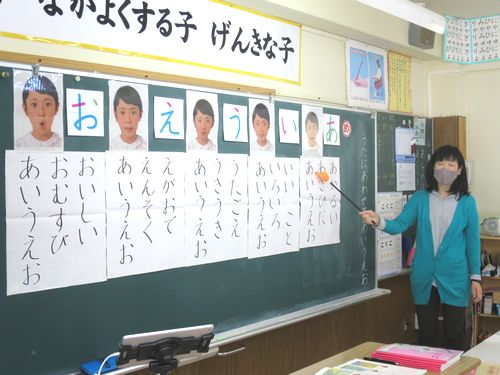 なかよくする子 げんきな子
め
うたにあわせて あいうえお
あ
い
う
え
お
あかるい
あさひだ
あいうえお
いい こと
いろいろ
あいうえお
うたごえ
うきうき
あいうえお
えがおで
えんそく
あいうえお
おいしい
おむすび
あいうえお